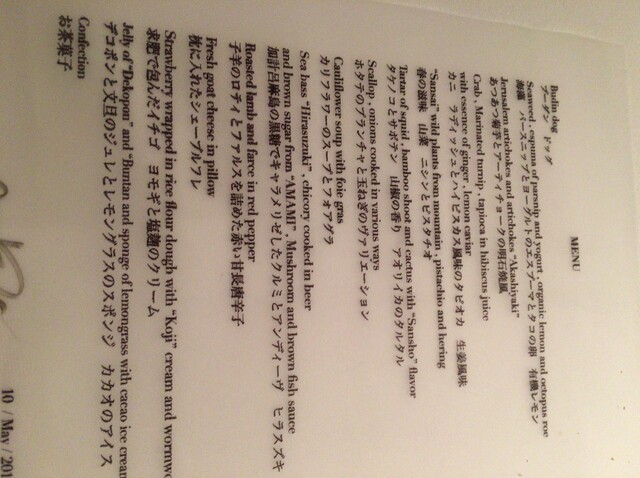 MENU
Budin dog
ブーダン ドッグ
Seaweed, espuma of parsnip and yogurt, organic lemon and octopus roe
海藻 パースニップとヨーグルトのエスプーマとタコの卵 有機レモン
Jerusalem artichokes and artichokes "Akashiyaki"
あつあつ菊芋とアーティチョークの明石焼風
Crab, Marinated turnip, tapioca in hibiscus juice
with essence of ginger, lemon caviar
カニ ラディッシュとハイビスカス風味のタピオカ 生姜風味
"Sansai" wild plants from mountain, pistachio and hering
春の滋味 山菜 ニシンとピスタチオ
Tartar of squid, bamboo shoot and cactus with "Sansho" flavor
タケノコとサボテン 山椒の香り アオリイカのタルタル
Scallop, onions cooked in various ways
ホタテのプランチャと玉ねぎのヴァリエーション
Cauliflower soup with foie gras
カリフラワーのスープとフォアグラ
Sea bass "Hirasuzuki", chicory cooked in beer
and brown sugar from "AMAMI", Mushroom and brown fish sauce
加計呂麻島の黒糖でキャラメリゼしたクルミとアンディーヴ ヒラスズキ
Roasted lamb and farce in red pepper
子羊のロティとファルスを詰めた赤い甘長唐辛子
Fresh goat cheese in pillow
枕に入れたシェーブルフレ
Strawberry wrapped in rice flour dough with "Koji" cream and wormwo
求肥で包んだイチゴ ヨモギと塩麹のクリーム
Jelly of "Dekopon" and "Buntan and sponge of lemongrass with cacao ice crean
デコポンと文旦のジュレとレモングラスのスポンジ カカオのアイス
Confection
お茶菓子
10 / May / 201